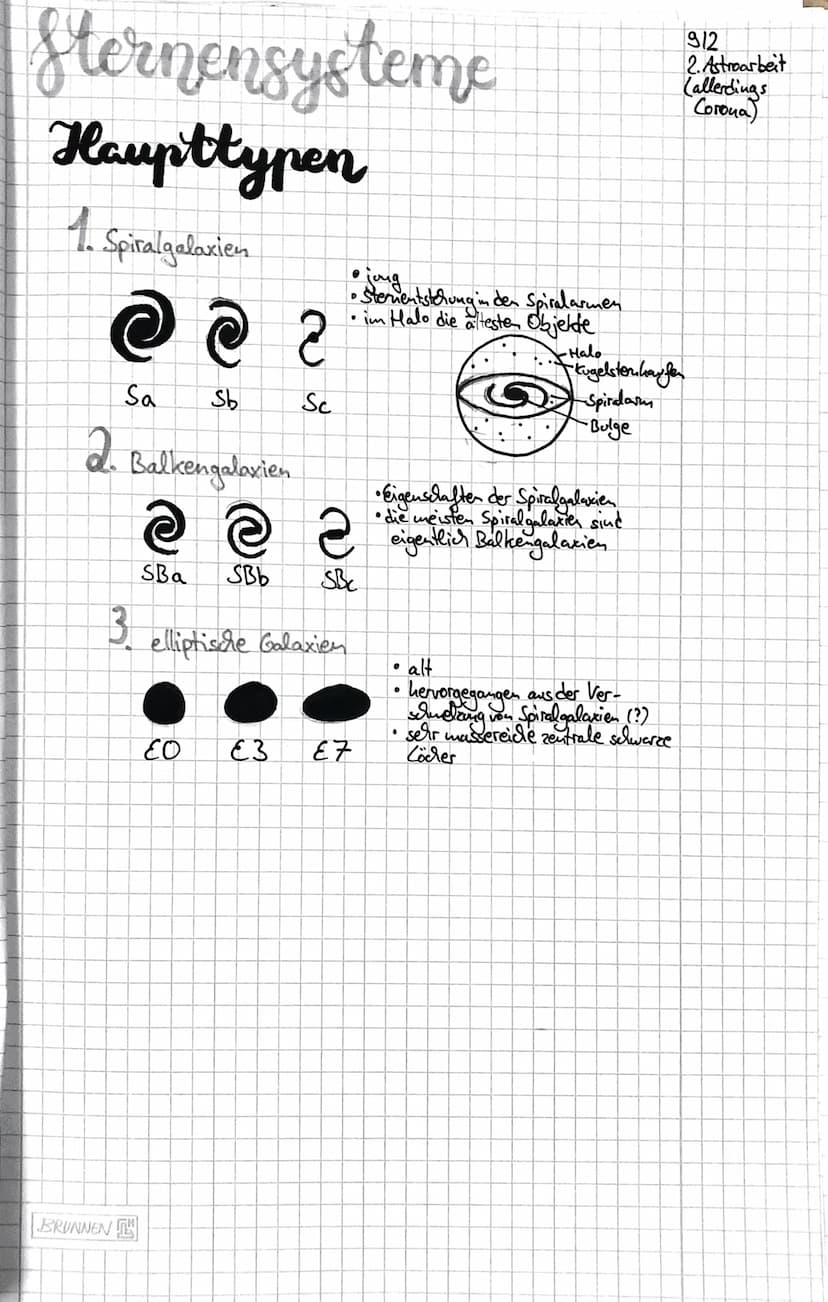 Sternensysteme
9/2
2. Astroarbeit
(allerdings
Corona)
Haupttypen
1. Spiralgalaxien
• jung
• Sternentstehung in den Spiralarmen
• im Halo die ältesten Objekte
Sa Sb Sc
Halo
Kugelsternhaufen
Spiralarm
Bulge
2. Balkengalaxien
• Eigenschaften der Spiralgalaxien
• die meisten Spiralgalaxien sind
eigentlich Balkengalaxien
SBa SBb SBc
3. elliptische Galaxien
• alt
• hervorgegangen aus der Ver-
schmelzung von Spiralgalaxien (?)
• sehr massereiche zentrale schwarze
Löcher
E0 E3 E7
BRUNNEN